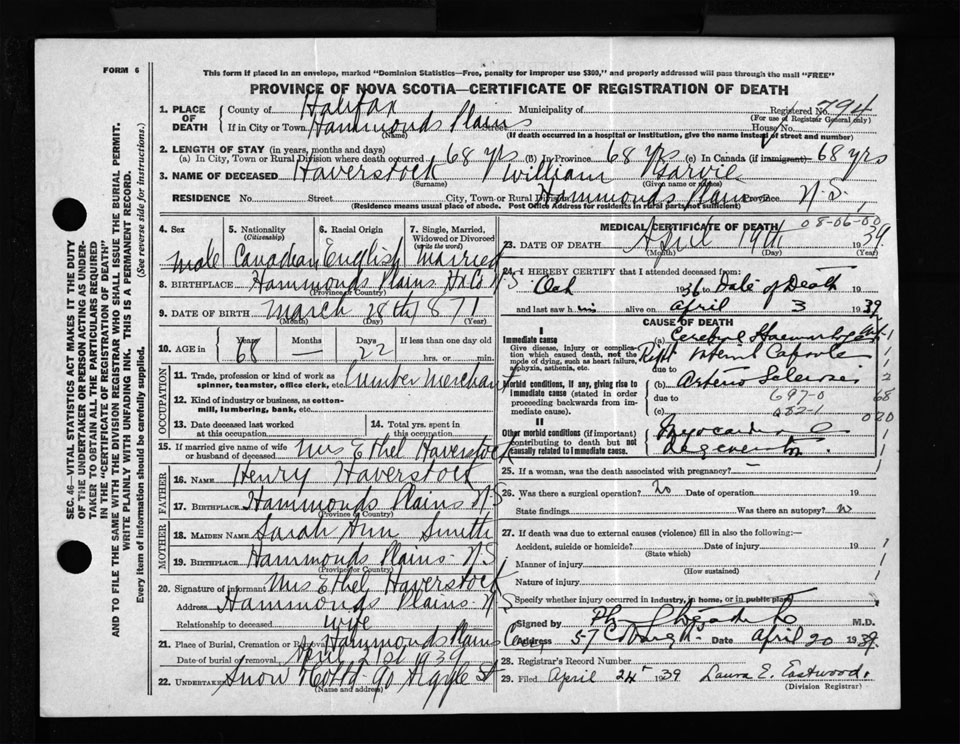 FORM 6
This form if placed in an envelope, marked "Dominion Statistics—Free, penalty for improper use $300," and properly addressed will pass through the mail "FREE"
PROVINCE OF NOVA SCOTIA—CERTIFICATE OF REGISTRATION OF DEATH
1. PLACE OF DEATH
County of Halifax Municipality of Registered No. 794
(For use of Registrar General only)
If in City or Town Hammonds Plains Street House No.
(Name) (If death occurred in a hospital or institution, give the name instead of street and number)
2. LENGTH OF STAY (in years, months and days)
(a) In City, Town or Rural Division where death occurred 68 yrs (B) In Province 68 yrs (c) In Canada (if immigrant) 68 yrs
3. NAME OF DECEASED Haverstock William Garvie
(Surname) (Given name or names)
RESIDENCE No. Street City, Town or Rural Division Hammonds Plains Province N.S.
(Residence means usual place of abode. Post Office Address for residents in rural parts not sufficient)
4. Sex
male
5. Nationality
(Citizenship)
Canadian
6. Racial Origin
English
7. Single, Married, Widowed or Divorced
(write the word)
Married
8. BIRTHPLACE Hammonds Plains Hx Co N S
(Province or Country)
9. DATE OF BIRTH March 28th 1871
(Month) (Day) (Year)
10. AGE in
Years Months Days If less than one day old
68 — 22 hrs. or min.
OCCUPATION
11. Trade, profession or kind of work as spinner, teamster, office clerk, etc. Lumber Merchant
12. Kind of industry or business, as cotton-mill, lumbering, bank, etc.
13. Date deceased last worked at this occupation
14. Total yrs. spent in this occupation
15. If married give name of wife or husband of deceased Mrs Ethel Haverstock
FATHER
16. Name Henry Haverstock
17. Birthplace Hammonds Plains N S
(Province or Country)
MOTHER
18. Maiden Name Sarah Ann Smith
19. Birthplace Hammonds Plains N S
(Province or Country)
20. Signature of informant Mrs Ethel Haverstock
Address Hammonds Plains N S
Relationship to deceased wife
21. Place of Burial, Cremation or Removal Hammonds Plains
Date of burial or removal April 21st 1939
22. Undertaker Snow 90 Argyle St
(Name and address)
MEDICAL CERTIFICATE OF DEATH 08-06-00
23. DATE OF DEATH April 19th 1939
(Month) (Day) (Year)
24. I HEREBY CERTIFY that I attended deceased from:
Oct 1936 to Date of Death
and last saw him alive on April 3 1939
CAUSE OF DEATH
I
Immediate cause
Give disease, injury or complication which caused death, not the mode of dying, such as heart failure, asphyxia, asthenia, etc.
(a) Cerebral Haemorrhage
Right Internal Capsule
due to
Morbid conditions, if any, giving rise to immediate cause (stated in order proceeding backwards from immediate cause).
(b) Arterio Sclerosis
due to 697-0
(c) 082-1
II
Other morbid conditions (if important) contributing to death but not causally related to immediate cause.
Myocardial
degeneration
25. If a woman, was the death associated with pregnancy?
26. Was there a surgical operation? no Date of operation 19
State findings Was there an autopsy? no
27. If death was due to external causes (violence) fill in also the following:—
Accident, suicide or homicide? Date of injury 19
(State which)
Manner of injury
(How sustained)
Nature of injury
Specify whether injury occurred in industry, in home, or in public place
Signed by M.D.
Address 57 Date April 20 1939
28. Registrar's Record Number
29. Filed April 24 1939 Laura E. Eastwood
(Division Registrar)
SEC. 46—VITAL STATISTICS ACT MAKES IT THE DUTY
OF THE UNDERTAKER OR PERSON ACTING AS UNDER-
TAKER TO OBTAIN ALL THE PARTICULARS REQUIRED
IN THE "CERTIFICATE OF REGISTRATION OF DEATH"
AND TO FILE THE SAME WITH THE DIVISION REGISTRAR WHO SHALL ISSUE THE BURIAL PERMIT.
WRITE PLAINLY WITH UNFADING INK. THIS IS A PERMANENT RECORD.
Every item of information should be carefully supplied. (See reverse side for instructions.)